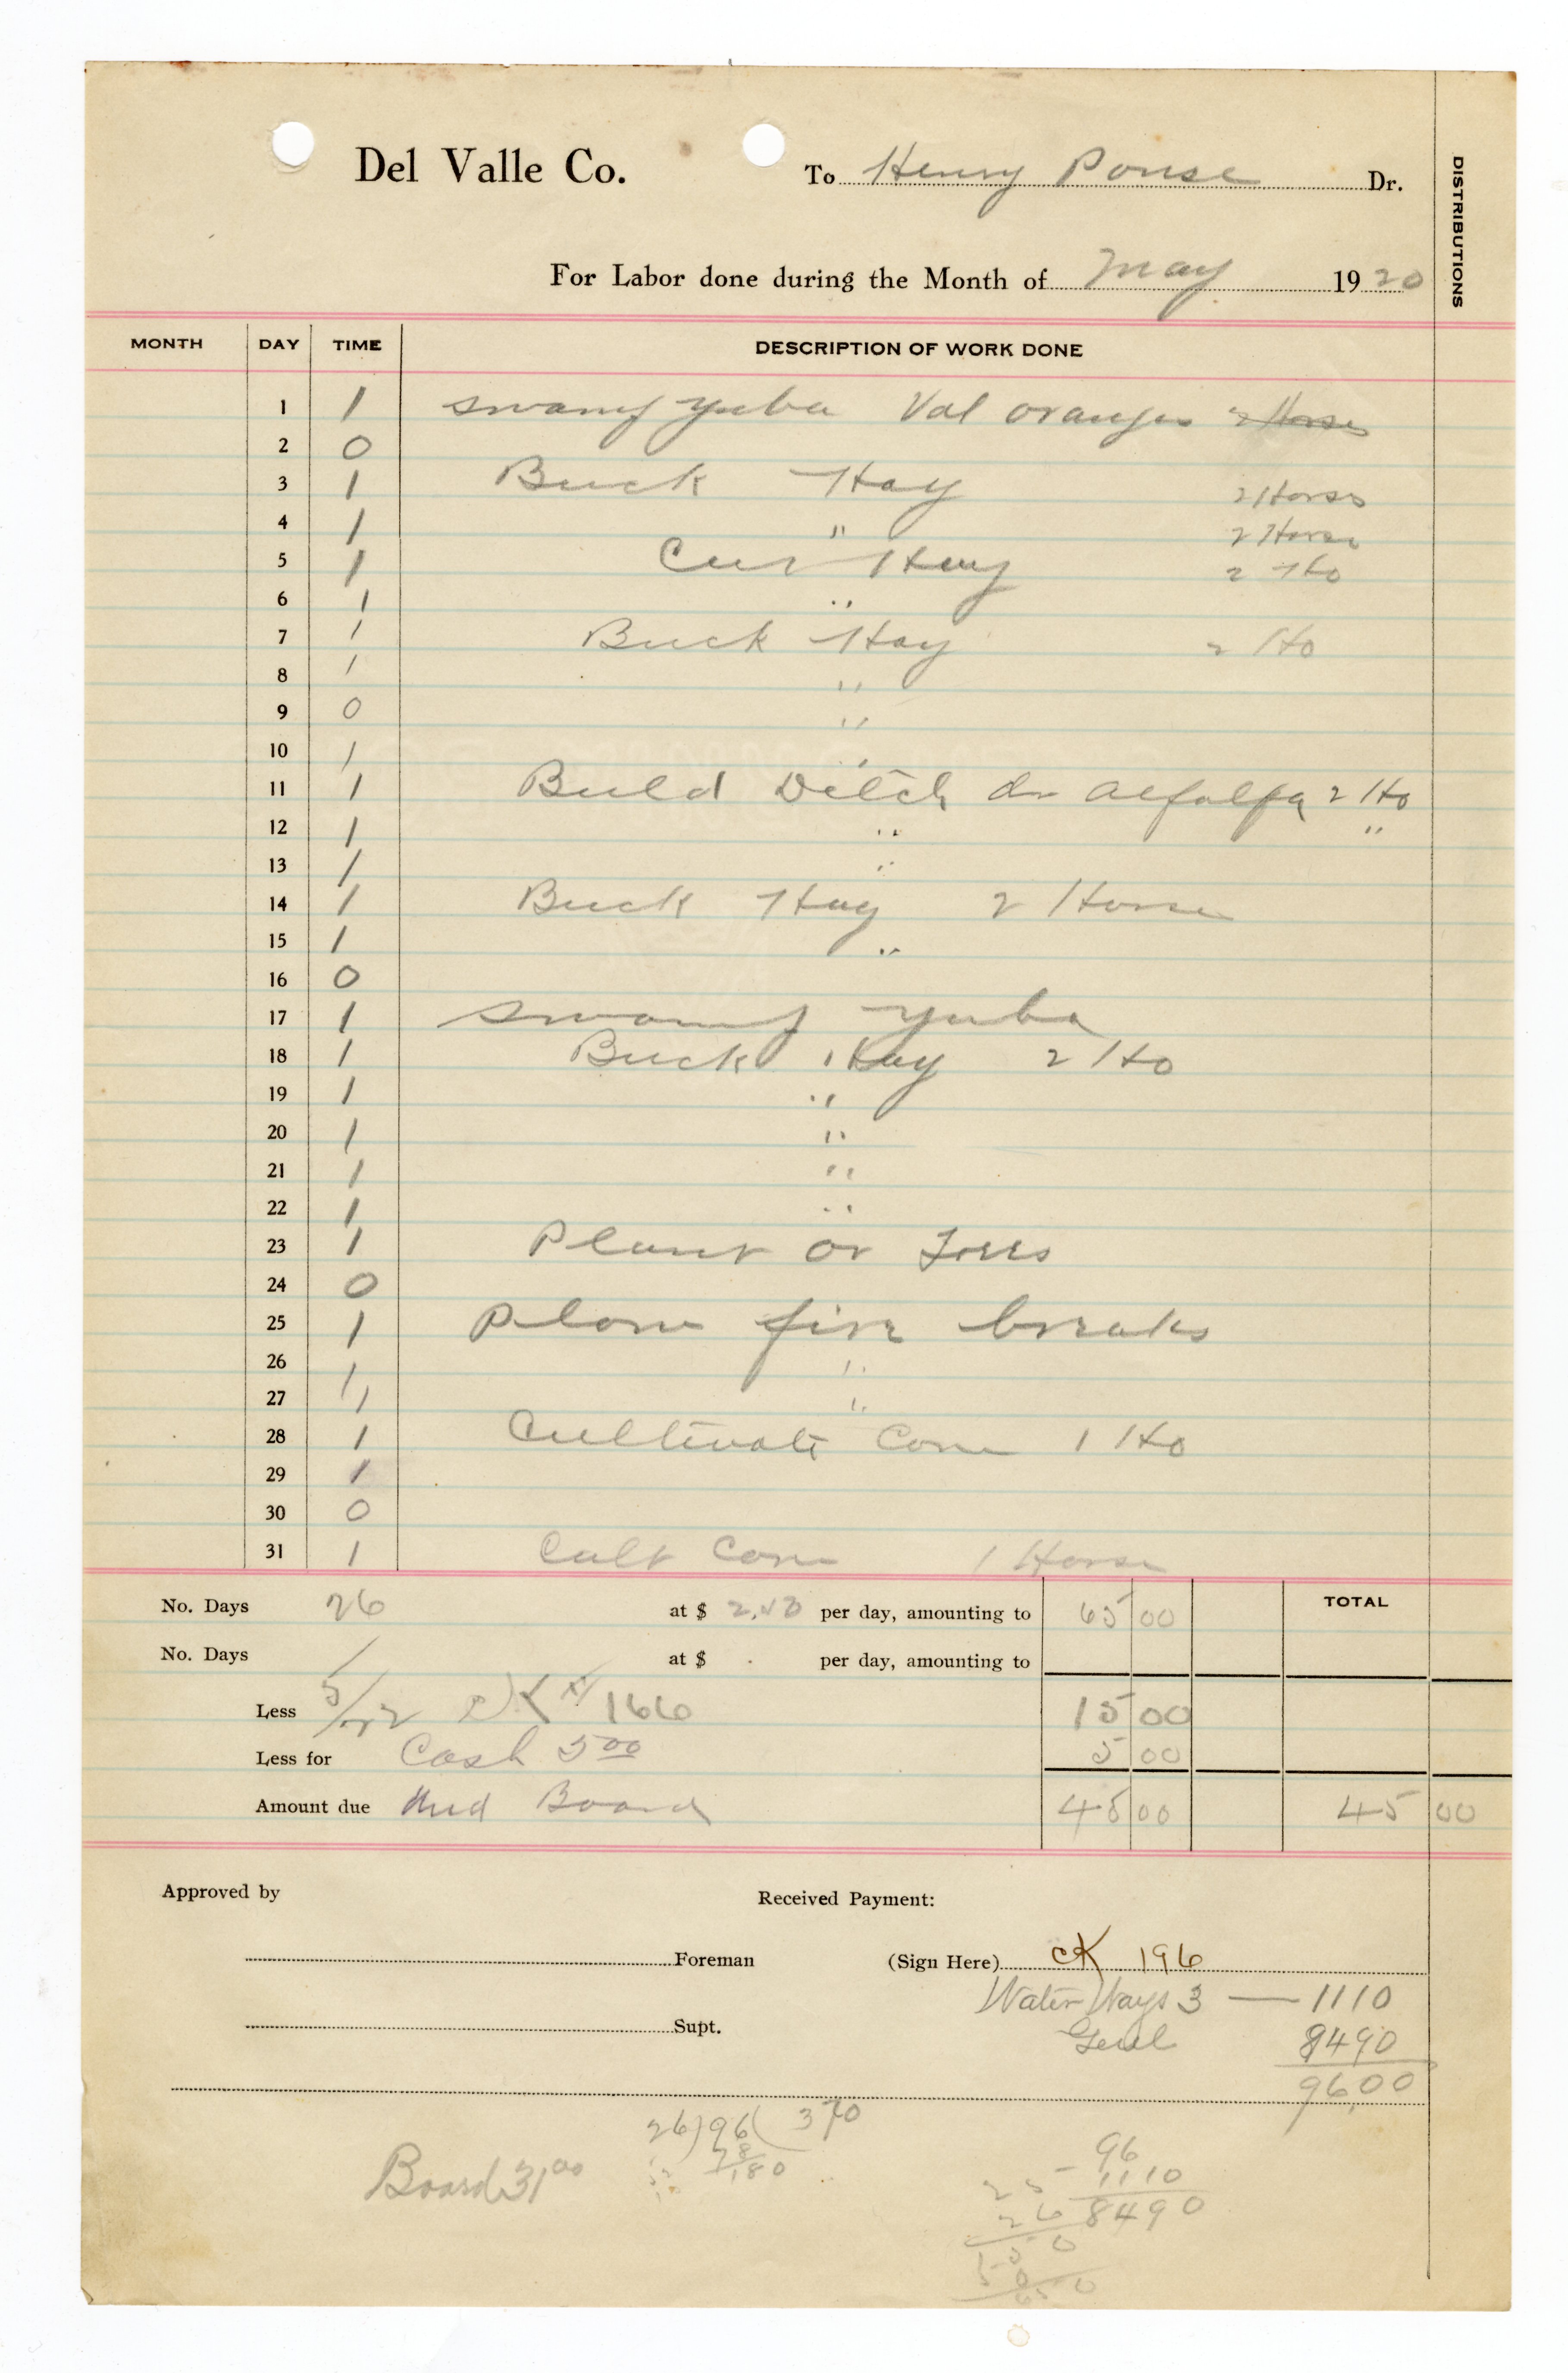 Del Valle Co. To Henry Ponse Dr.
DISTRIBUTIONS
For Labor done during the Month of May 1920
MONTH DAY TIME DESCRIPTION OF WORK DONE
1 1 swamp yuba Val oranges 2 Horses
2 0
3 1 Buck Hay 2 Horses
4 1 " 2 Horse
5 1 Cut Hay 2 Ho
6 1 "
7 1 Buck Hay 2 Ho
8 1 "
9 0 "
10 1 "
11 1 Build Ditch alfalfa 2 Ho
12 1 " "
13 1 "
14 1 Buck Hay 2 Horse
15 1 "
16 0
17 1 swamp yuba
18 1 Buck Hay 2 Ho
19 1 "
20 1 "
21 1 "
22 1 "
23 1 Plant or Trees
24 0
25 1 Plow fire breaks
26 1 "
27 1 "
28 1 Cultivate Corn 1 Ho
29 1
30 0
31 1 Cult Corn 1 Horse
No. Days 26 at $ 2.50 per day, amounting to 65 00 TOTAL
No. Days at $ per day, amounting to
Less 5/22 CK # 166 15 00
Less for Cash 5 00 5 00
Amount due And Board 45 00 45 00
Approved by Received Payment:
Foreman (Sign Here) CK 196
Water Ways 3 — 1110
Supt. Genl 8490
96,00
26)96( 370
78
180
Board 31 00
96
1110
8490